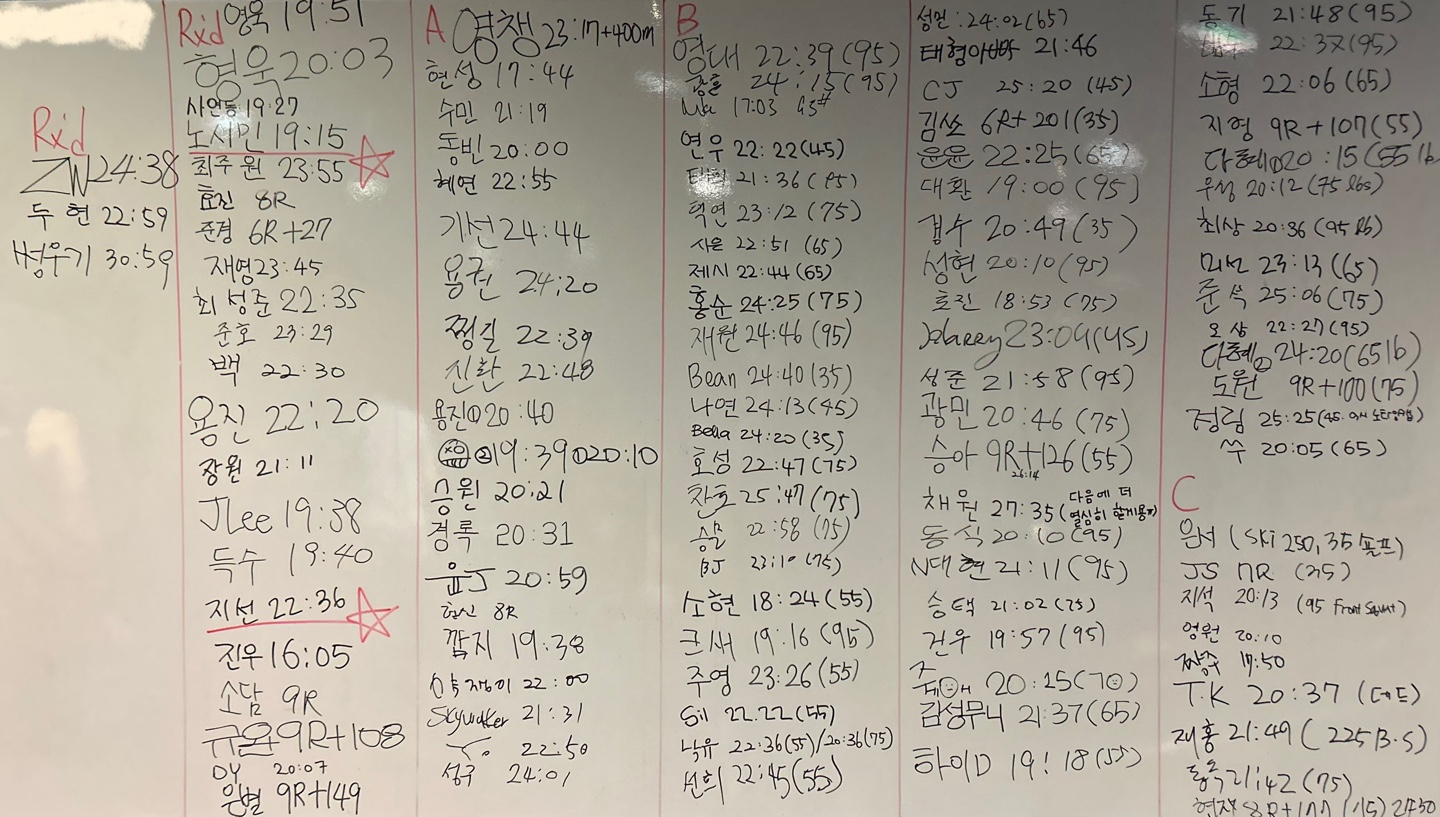 Rx'd
ZW 24:38
두현 22:59
병우기 30:59
Rxd 영욱 19:51
형욱 20:03
사언동 19:27
노시민 19:15
최주원 23:55
효진 8R
준경 6R+27
재영 23:45
최성준 22:35
준호 23:29
백 22:30
용진 22:20
장원 21:11
JLee 19:38
득수 19:40
지선 22:36
진우 16:05
소담 9R
규율 9R+108
DY 20:07
은별 9R+149
A 영쟁 23:17+400m
현성 17:44
수민 21:19
동빈 20:00
혜연 22:55
기선 24:44
용권 24:20
찡길 22:39
신환 22:48
용진① 20:40
②19:39 ①20:10
승원 20:21
경록 20:31
윤J 20:59
현신 8R
깜지 19:38
수쟁이 22:00
Skywalker 21:31
22:50
성우 24:01
B
영대 22:39 (95)
종훈 24:15 (95)
Mu 17:03 95#
연우 22:22 (45)
21:36 (95)
덕연 23:12 (75)
사은 22:51 (65)
제시 22:44 (65)
홍순 24:25 (75)
재원 24:46 (95)
Bean 24:40 (35)
나연 24:13 (45)
Bella 24:20 (35)
효성 22:47 (75)
찬호 25:47 (75)
승문 22:58 (75)
BJ 23:10 (75)
소현 18:24 (55)
크새 19:16 (95)
주영 23:26 (55)
Gil 22:22 (55)
낙유 22:36 (55)/20:36 (75)
선희 22:45 (55)
성민: 24:02 (65)
태형 21:46
CJ 25:20 (45)
김쏘 6R+201 (35)
윤윤 22:25 (65)
대환 19:00 (95)
경수 20:49 (35)
성현 20:10 (95)
효진 18:53 (75)
23:04 (45)
성준 21:58 (95)
광민 20:46 (75)
승아 9R+126 (55)
26:14
채원 27:35 (다음에 더
열심히 할게용)
동식 20:10 (95)
N대현 21:11 (95)
승택 21:02 (75)
건우 19:57 (95)
20:15 (70)
김성무니 21:37 (65)
하이D 19:18 (55)
동기 21:48 (95)
22:37 (95)
소형 22:06 (65)
지영 9R+107 (55)
다혜① 20:15 (55lb)
우성 20:12 (75lbs)
최상 20:36 (95lb)
미선 23:13 (65)
준석 25:06 (75)
오상 22:27 (95)
다혜② 24:20 (65lb)
도원 9R+100 (75)
경림 25:25 (45)
쑤 20:05 (65)
C
은서 (Ski 250, 35 숄프)
JS 7R (35)
지석 20:13 (95 Front Squat)
영원 20:10
짱수 17:50
T.K 20:37 (데드)
재홍 21:49 (225 B.S)
동욱 21:42 (75)
현재 8R+